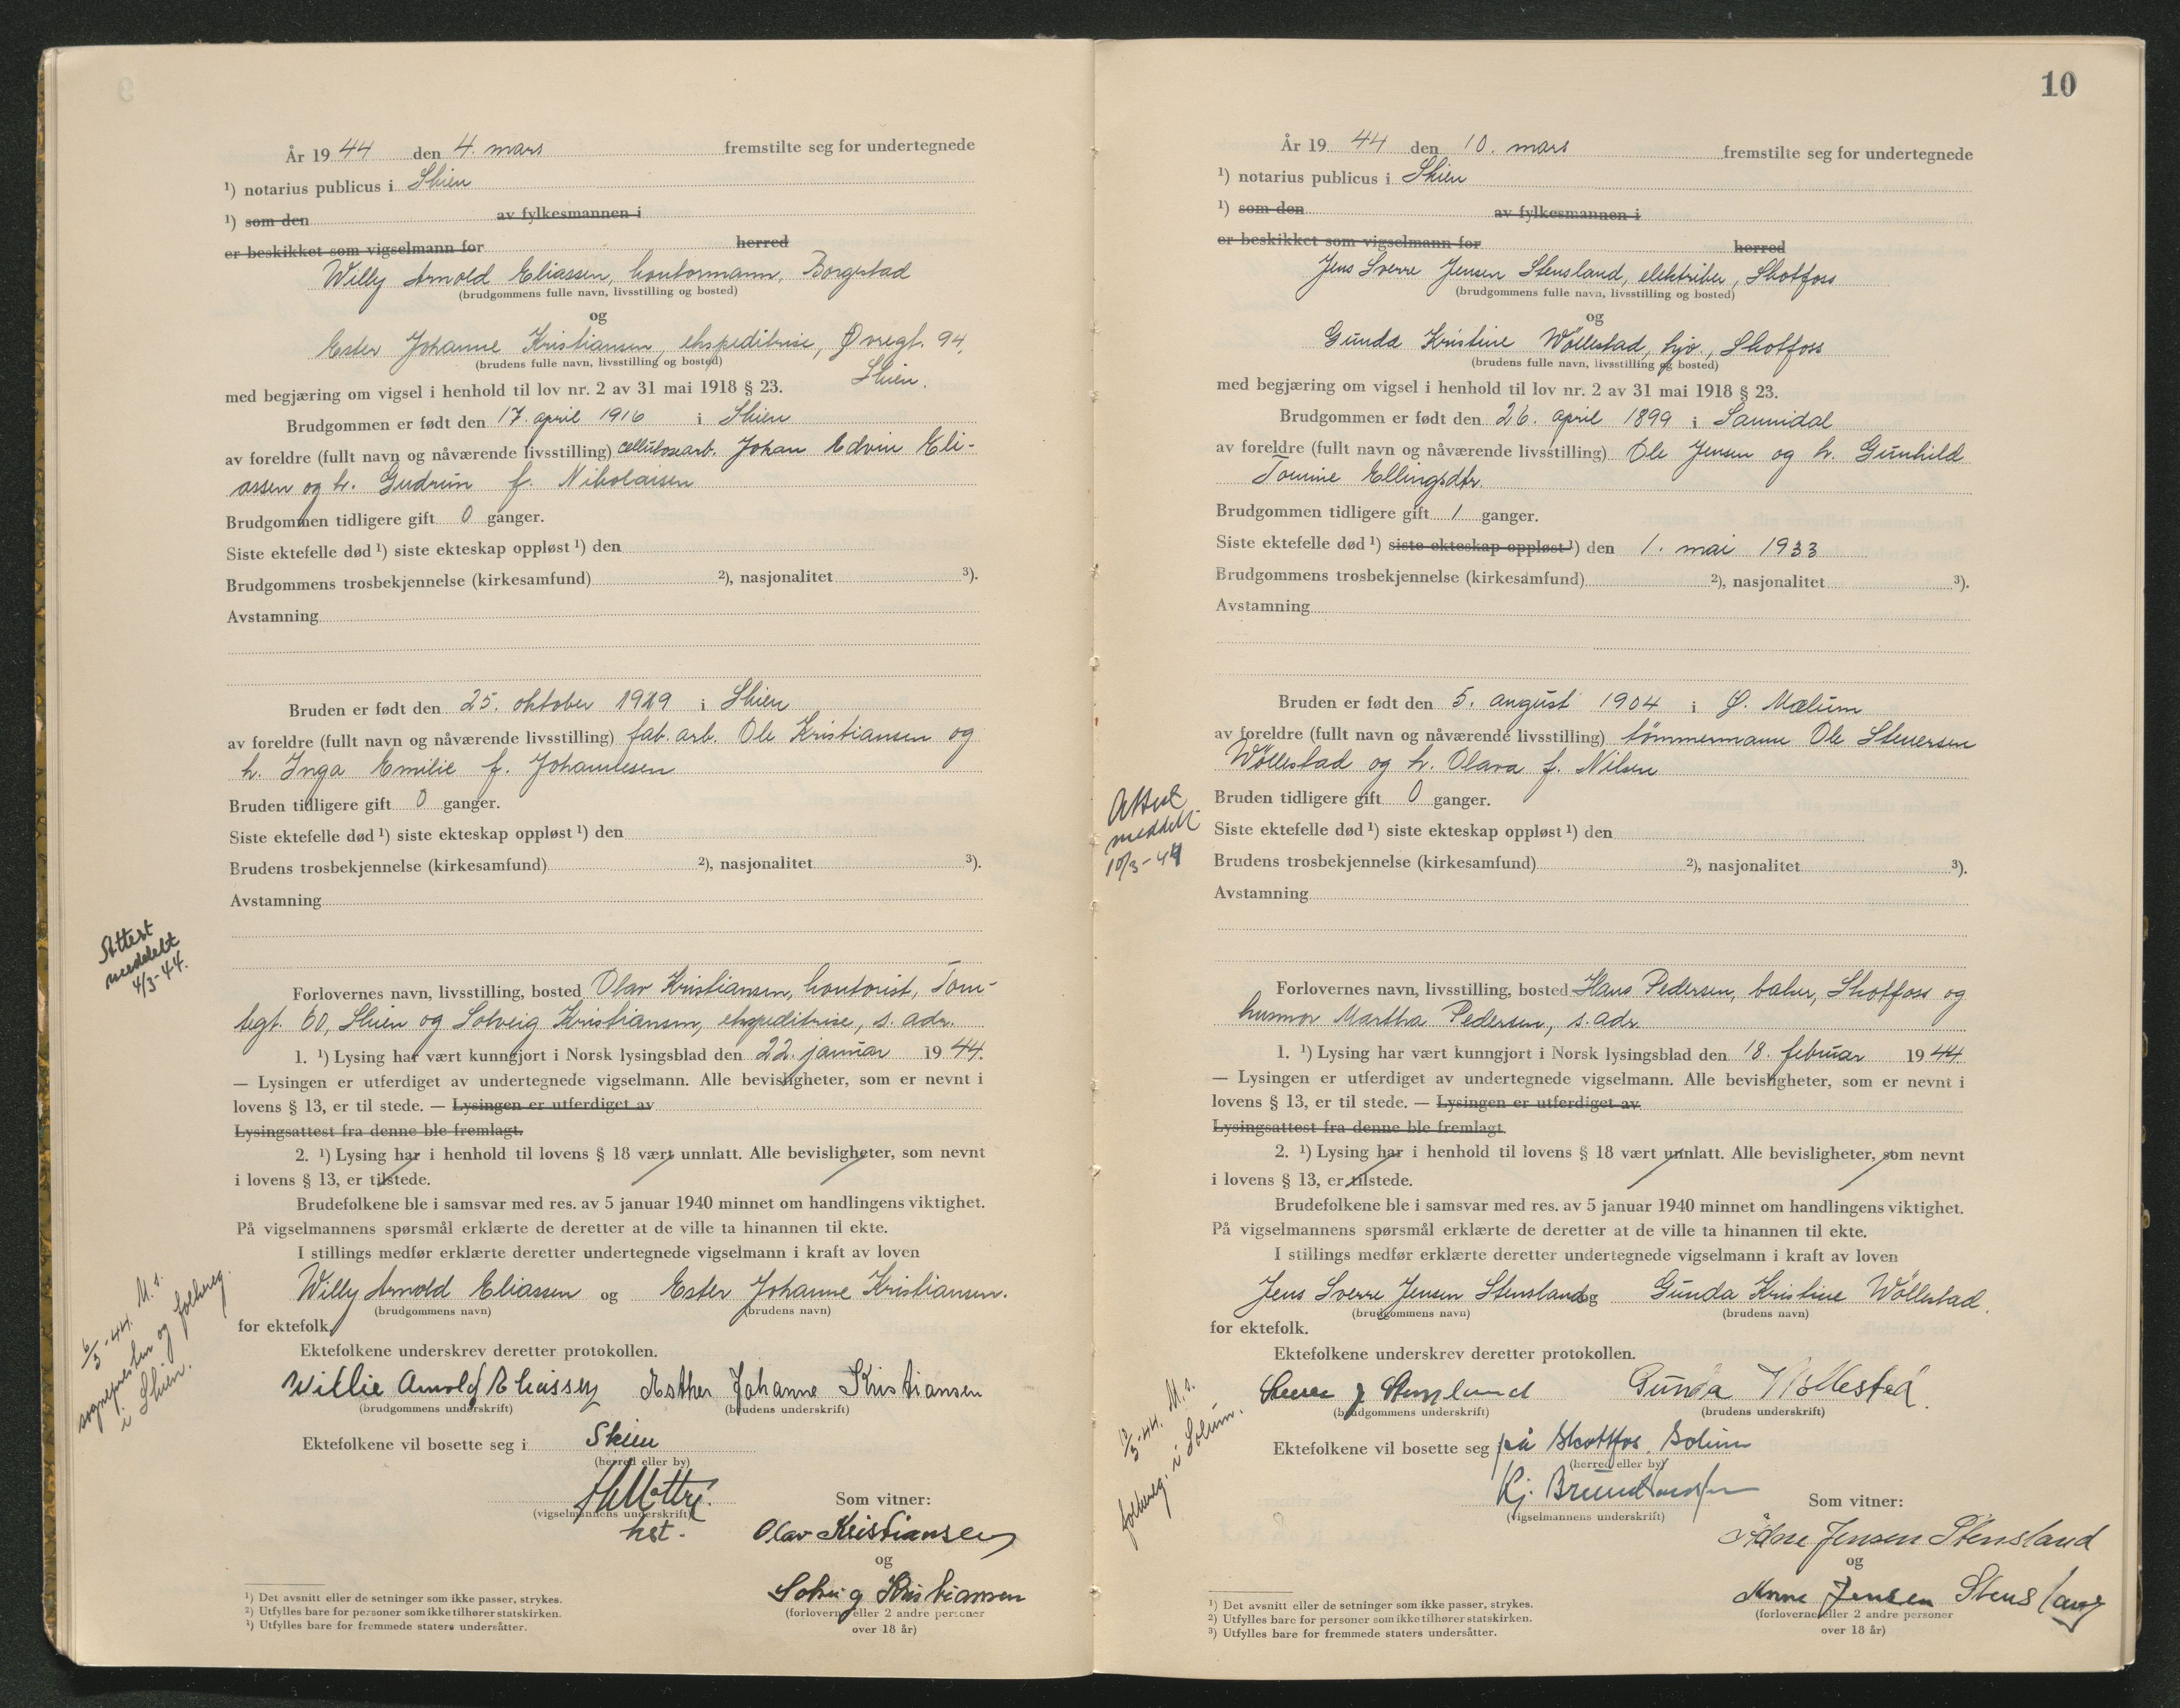 År 1944 den 4. mars fremstilte seg for undertegnede
¹) notarius publicus i Skien
¹) som den av fylkesmannen i
er beskikket som vigselmann for herred
Willy Arnold Eliassen, kontormann, Borgestad
(brudgommens fulle navn, livsstilling og bosted)
og
Ester Johanne Kristiansen, ekspeditrise, Øvregt. 94,
(brudens fulle navn, livsstilling og bosted)
Skien.
med begjæring om vigsel i henhold til lov nr. 2 av 31 mai 1918 § 23.
Brudgommen er født den 17. april 1916 i Skien
av foreldre (fullt navn og nåværende livsstilling) cellulosearb. Johan Edvin Eli-
assen og h. Gudrun f. Nikolaisen
Brudgommen tidligere gift 0 ganger.
Siste ektefelle død ¹) siste ekteskap oppløst ¹) den
Brudgommens trosbekjennelse (kirkesamfund) ²), nasjonalitet ³).
Avstamning
Bruden er født den 25. oktober 1919 i Skien
av foreldre (fullt navn og nåværende livsstilling) fab.arb. Ole Kristiansen og
h. Inga Emilie f. Johannesen
Bruden tidligere gift 0 ganger.
Siste ektefelle død ¹) siste ekteskap oppløst ¹) den
Brudens trosbekjennelse (kirkesamfund) ²), nasjonalitet ³).
Avstamning
Attest
meddelt
4/3-44.
Forlovernes navn, livsstilling, bosted Olav Kristiansen, kontorist, Tom-
tegt. 60, Skien og Solveig Kristiansen, ekspeditrise, s. adr.
1. ¹) Lysing har vært kunngjort i Norsk lysingsblad den 22. januar 1944.
— Lysingen er utferdiget av undertegnede vigselmann. Alle bevisligheter, som er nevnt i
lovens § 13, er til stede. — Lysingen er utferdiget av
Lysingsattest fra denne ble fremlagt.
2. ¹) Lysing har i henhold til lovens § 18 vært unnlatt. Alle bevisligheter, som nevnt
i lovens § 13, er tilstede.
Brudefolkene ble i samsvar med res. av 5 januar 1940 minnet om handlingens viktighet.
På vigselmannens spørsmål erklærte de deretter at de ville ta hinannen til ekte.
I stillings medfør erklærte deretter undertegnede vigselmann i kraft av loven
Willy Arnold Eliassen og Ester Johanne Kristiansen.
(brudgommens navn) (brudens navn)
for ektefolk.
6/3-44. M. s.
sognepresten og folkereg.
i Skien.
Ektefolkene underskrev deretter protokollen.
Willie Arnold Eliassen Esther Johanne Kristiansen
(brudgommens underskrift) (brudens underskrift)
Ektefolkene vil bosette seg i Skien
(herred eller by)
(vigselmannens underskrift)
hst.
Som vitner:
Olav Kristiansen
og
Solveig Kristiansen
(forloverne eller 2 andre personer
over 18 år)
¹) Det avsnitt eller de setninger som ikke passer, strykes.
²) Utfylles bare for personer som ikke tilhører statskirken.
³) Utfylles bare for fremmede staters undersåtter.
10
År 1944 den 10. mars fremstilte seg for undertegnede
¹) notarius publicus i Skien
¹) som den av fylkesmannen i
er beskikket som vigselmann for herred
Jens Sverre Jensen Stensland, elektriker, Skotfoss
(brudgommens fulle navn, livsstilling og bosted)
og
Gunda Kristine Wøllestad, hjv., Skotfoss
(brudens fulle navn, livsstilling og bosted)
med begjæring om vigsel i henhold til lov nr. 2 av 31 mai 1918 § 23.
Brudgommen er født den 26. april 1899 i Sannidal
av foreldre (fullt navn og nåværende livsstilling) Ole Jensen og h. Gunhild
Tomine Ellingsdtr.
Brudgommen tidligere gift 1 ganger.
Siste ektefelle død ¹) siste ekteskap oppløst ¹) den 1. mai 1933
Brudgommens trosbekjennelse (kirkesamfund) ²), nasjonalitet ³).
Avstamning
Bruden er født den 5. august 1904 i Ø. Mælum
av foreldre (fullt navn og nåværende livsstilling) tømmermann Ole Stenersen
Wøllestad og h. Olava f. Nilsen
Attest
meddelt
10/3-44
Bruden tidligere gift 0 ganger.
Siste ektefelle død ¹) siste ekteskap oppløst ¹) den
Brudens trosbekjennelse (kirkesamfund) ²), nasjonalitet ³).
Avstamning
Forlovernes navn, livsstilling, bosted Hans Pedersen, baker, Skotfoss og
husmor Martha Pedersen, s. adr.
1. ¹) Lysing har vært kunngjort i Norsk lysingsblad den 18. februar 1944
— Lysingen er utferdiget av undertegnede vigselmann. Alle bevisligheter, som er nevnt i
lovens § 13, er til stede. — Lysingen er utferdiget av
Lysingsattest fra denne ble fremlagt
2. ¹) Lysing har i henhold til lovens § 18 vært unnlatt. Alle bevisligheter, som nevnt
i lovens § 13, er tilstede.
Brudefolkene ble i samsvar med res. av 5 januar 1940 minnet om handlingens viktighet.
På vigselmannens spørsmål erklærte de deretter at de ville ta hinannen til ekte.
I stillings medfør erklærte deretter undertegnede vigselmann i kraft av loven
Jens Sverre Jensen Stensland og Gunda Kristine Wøllestad.
(brudgommens navn) (brudens navn)
for ektefolk.
Ektefolkene underskrev deretter protokollen.
Sverre J Stensland Gunda Wøllestad.
(brudgommens underskrift) (brudens underskrift)
13/3-44. M. s.
folkereg. i Solum.
Ektefolkene vil bosette seg på Skotfos. Solum
(herred eller by)
Kj.
(vigselmannens underskrift)
Som vitner:
Jensen Stensland
og
Anne Jensen Stensland
(forloverne eller 2 andre personer
over 18 år)
¹) Det avsnitt eller de setninger som ikke passer, strykes.
²) Utfylles bare for personer som ikke tilhører statskirken.
³) Utfylles bare for fremmede staters undersåtter.